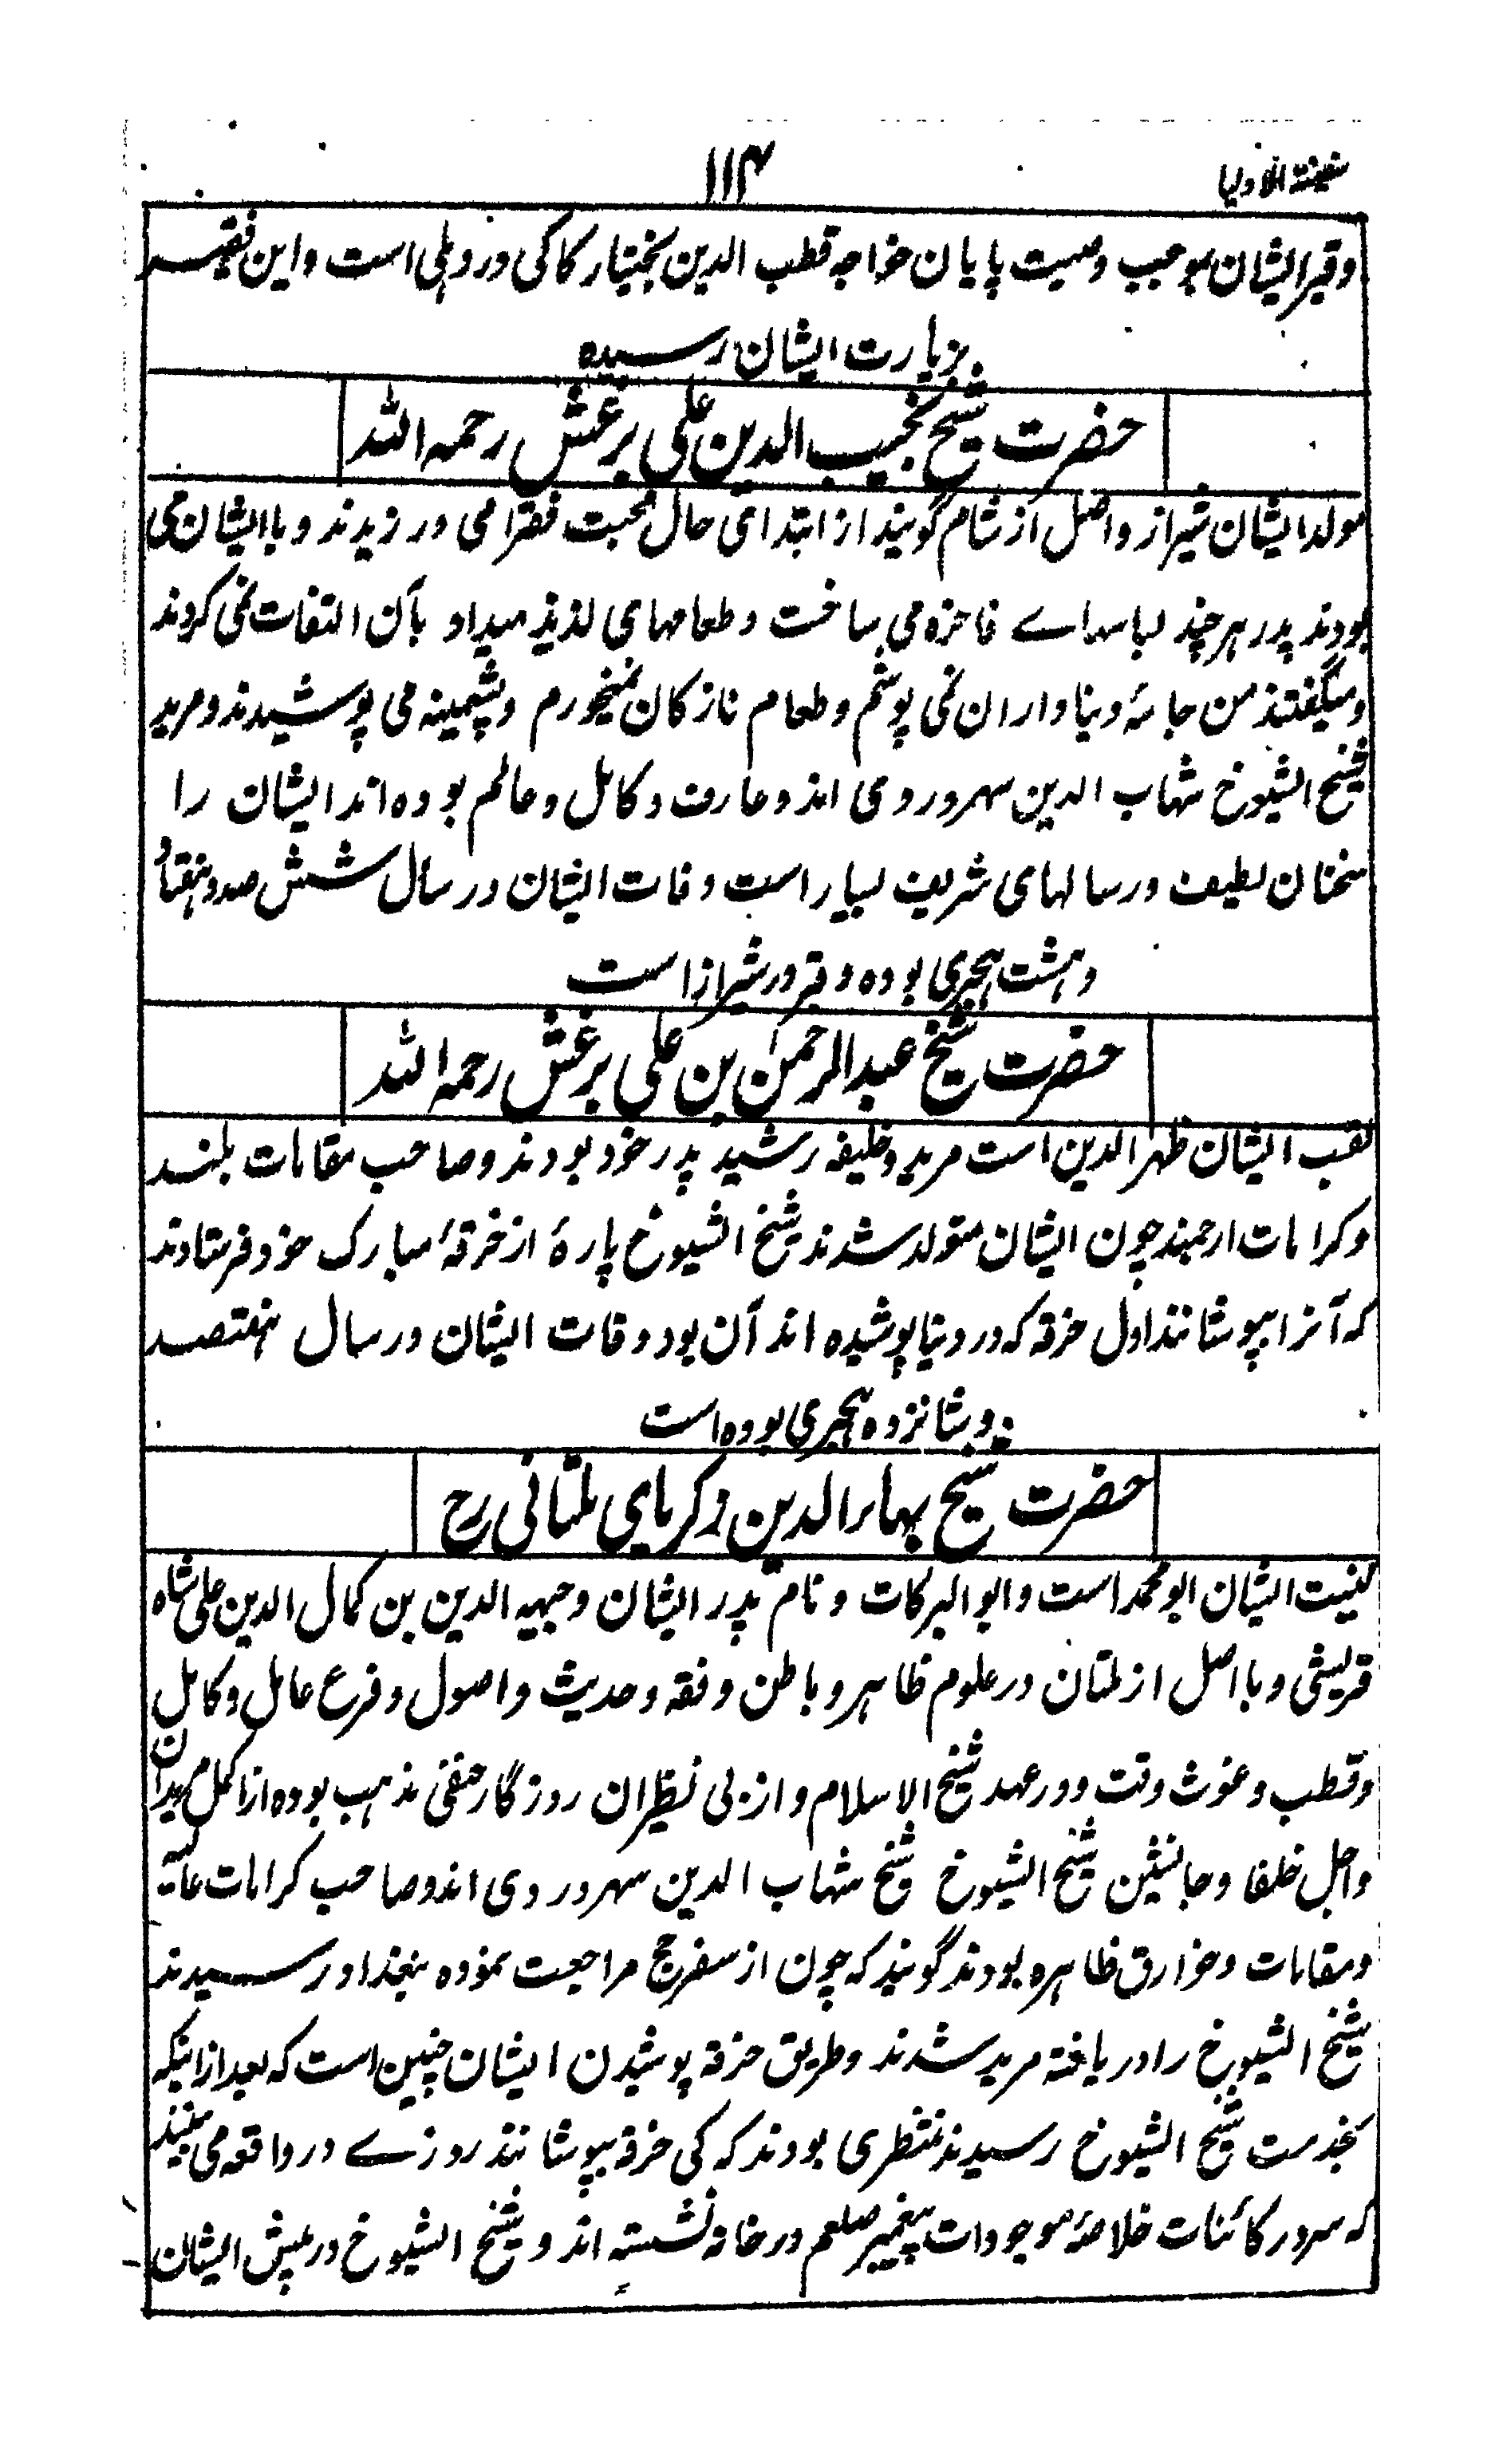 سفینة الاولیا
۱۱۴
وقبر ایشان بموجب وصیت پایان خواجه قطب الدین بختیار کاکی در دهلی است و این فقیر
بزیارت ایشان رسیده
حضرت شیخ نجیب الدین علی برغش رحمه الله
مولد ایشان شیراز و اصل از شام گویند از ابتدای حال محبت فقرا می ورزیدند و با ایشان می
بودند پدر هرچند لباسهاے فاخره می ساخت و طعامهای لذیذ میداد بآن التفات نمی کردند
و میگفتند من جامهٔ دنیاداران نمی پوشم و طعام نازکان نمیخورم و پشمینه می پوشیدند و مرید
شیخ الشیوخ شهاب الدین سهروردی اند و عارف و کامل و عالم بوده اند ایشان را
سخنان لطیف و رسالهای شریف بسیار است وفات ایشان در سال شش صد و هفتاد و
هشت هجری بوده و قبر در شیراز است
حضرت شیخ عبدالرحمن بن علی برغش رحمه الله
لقب ایشان ظهیر الدین است مرید و خلیفه رشید پدر خود بودند و صاحب مقامات بلند
و کرامات ارجمند چون ایشان متولد شدند شیخ الشیوخ پارهٔ از خرقهٔ مبارک خود فرستادند
که آنرا بپوشانند اول خرقه که در دنیا پوشیده اند آن بود وفات ایشان در سال هفتصد
و شانزده هجری بوده است
حضرت شیخ بهاء الدین زکریای ملتانی رح
کنیت ایشان ابومحمد است و ابوالبرکات و نام پدر ایشان وجیهه الدین بن کمال الدین علی شاه
قریشی و با اصل از ملتان در علوم ظاهر و باطن و فقه و حدیث و اصول و فرع عامل و کامل
و قطب و غوث وقت و در عهد شیخ الاسلام و از بی نظیران روزگار حنفی مذهب بوده از اکمل مریدان
و اجل خلفا و جانشین شیخ الشیوخ شیخ شهاب الدین سهروردی اند و صاحب کرامات عالیه
و مقامات و خوارق ظاهره بودند گویند که چون از سفر حج مراجعت نموده ببغداد رسیدند
شیخ الشیوخ را دریافته مرید شدند و طریق خرقه پوشیدن ایشان چنین است که بعد از اینکه
بخدمت شیخ الشیوخ رسیدند منتظری بودند که کی خرقه بپوشانند روزے در واقعه می بینند
که سرور کائنات خلاصهٔ موجودات پیغمبر صلعم در خانه نشسته اند و شیخ الشیوخ در پیش ایشان